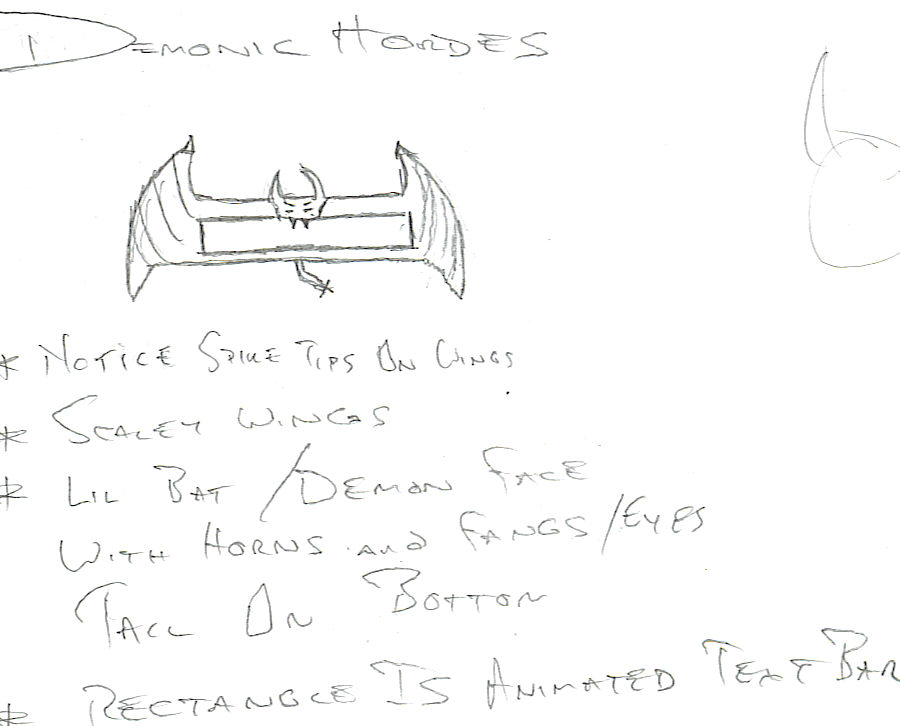 1 DEMONIC HORDES
* NOTICE SPIKE TIPS ON WINGS
* SCALEY WINGS
* LIL BAT / DEMON FACE
WITH HORNS AND FANGS/EYES
TAIL ON BOTTOM
* RECTANGLE IS ANIMATED TEXT BAR